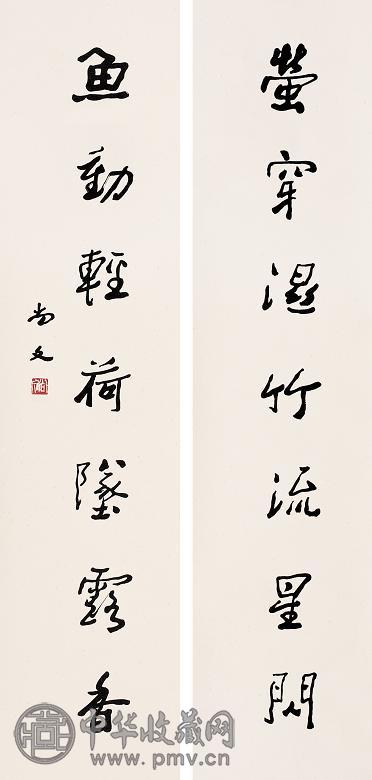 螢穿濕竹流星閃
魚動輕荷墜露香
尚文
中华收藏网
www.pmv.cn